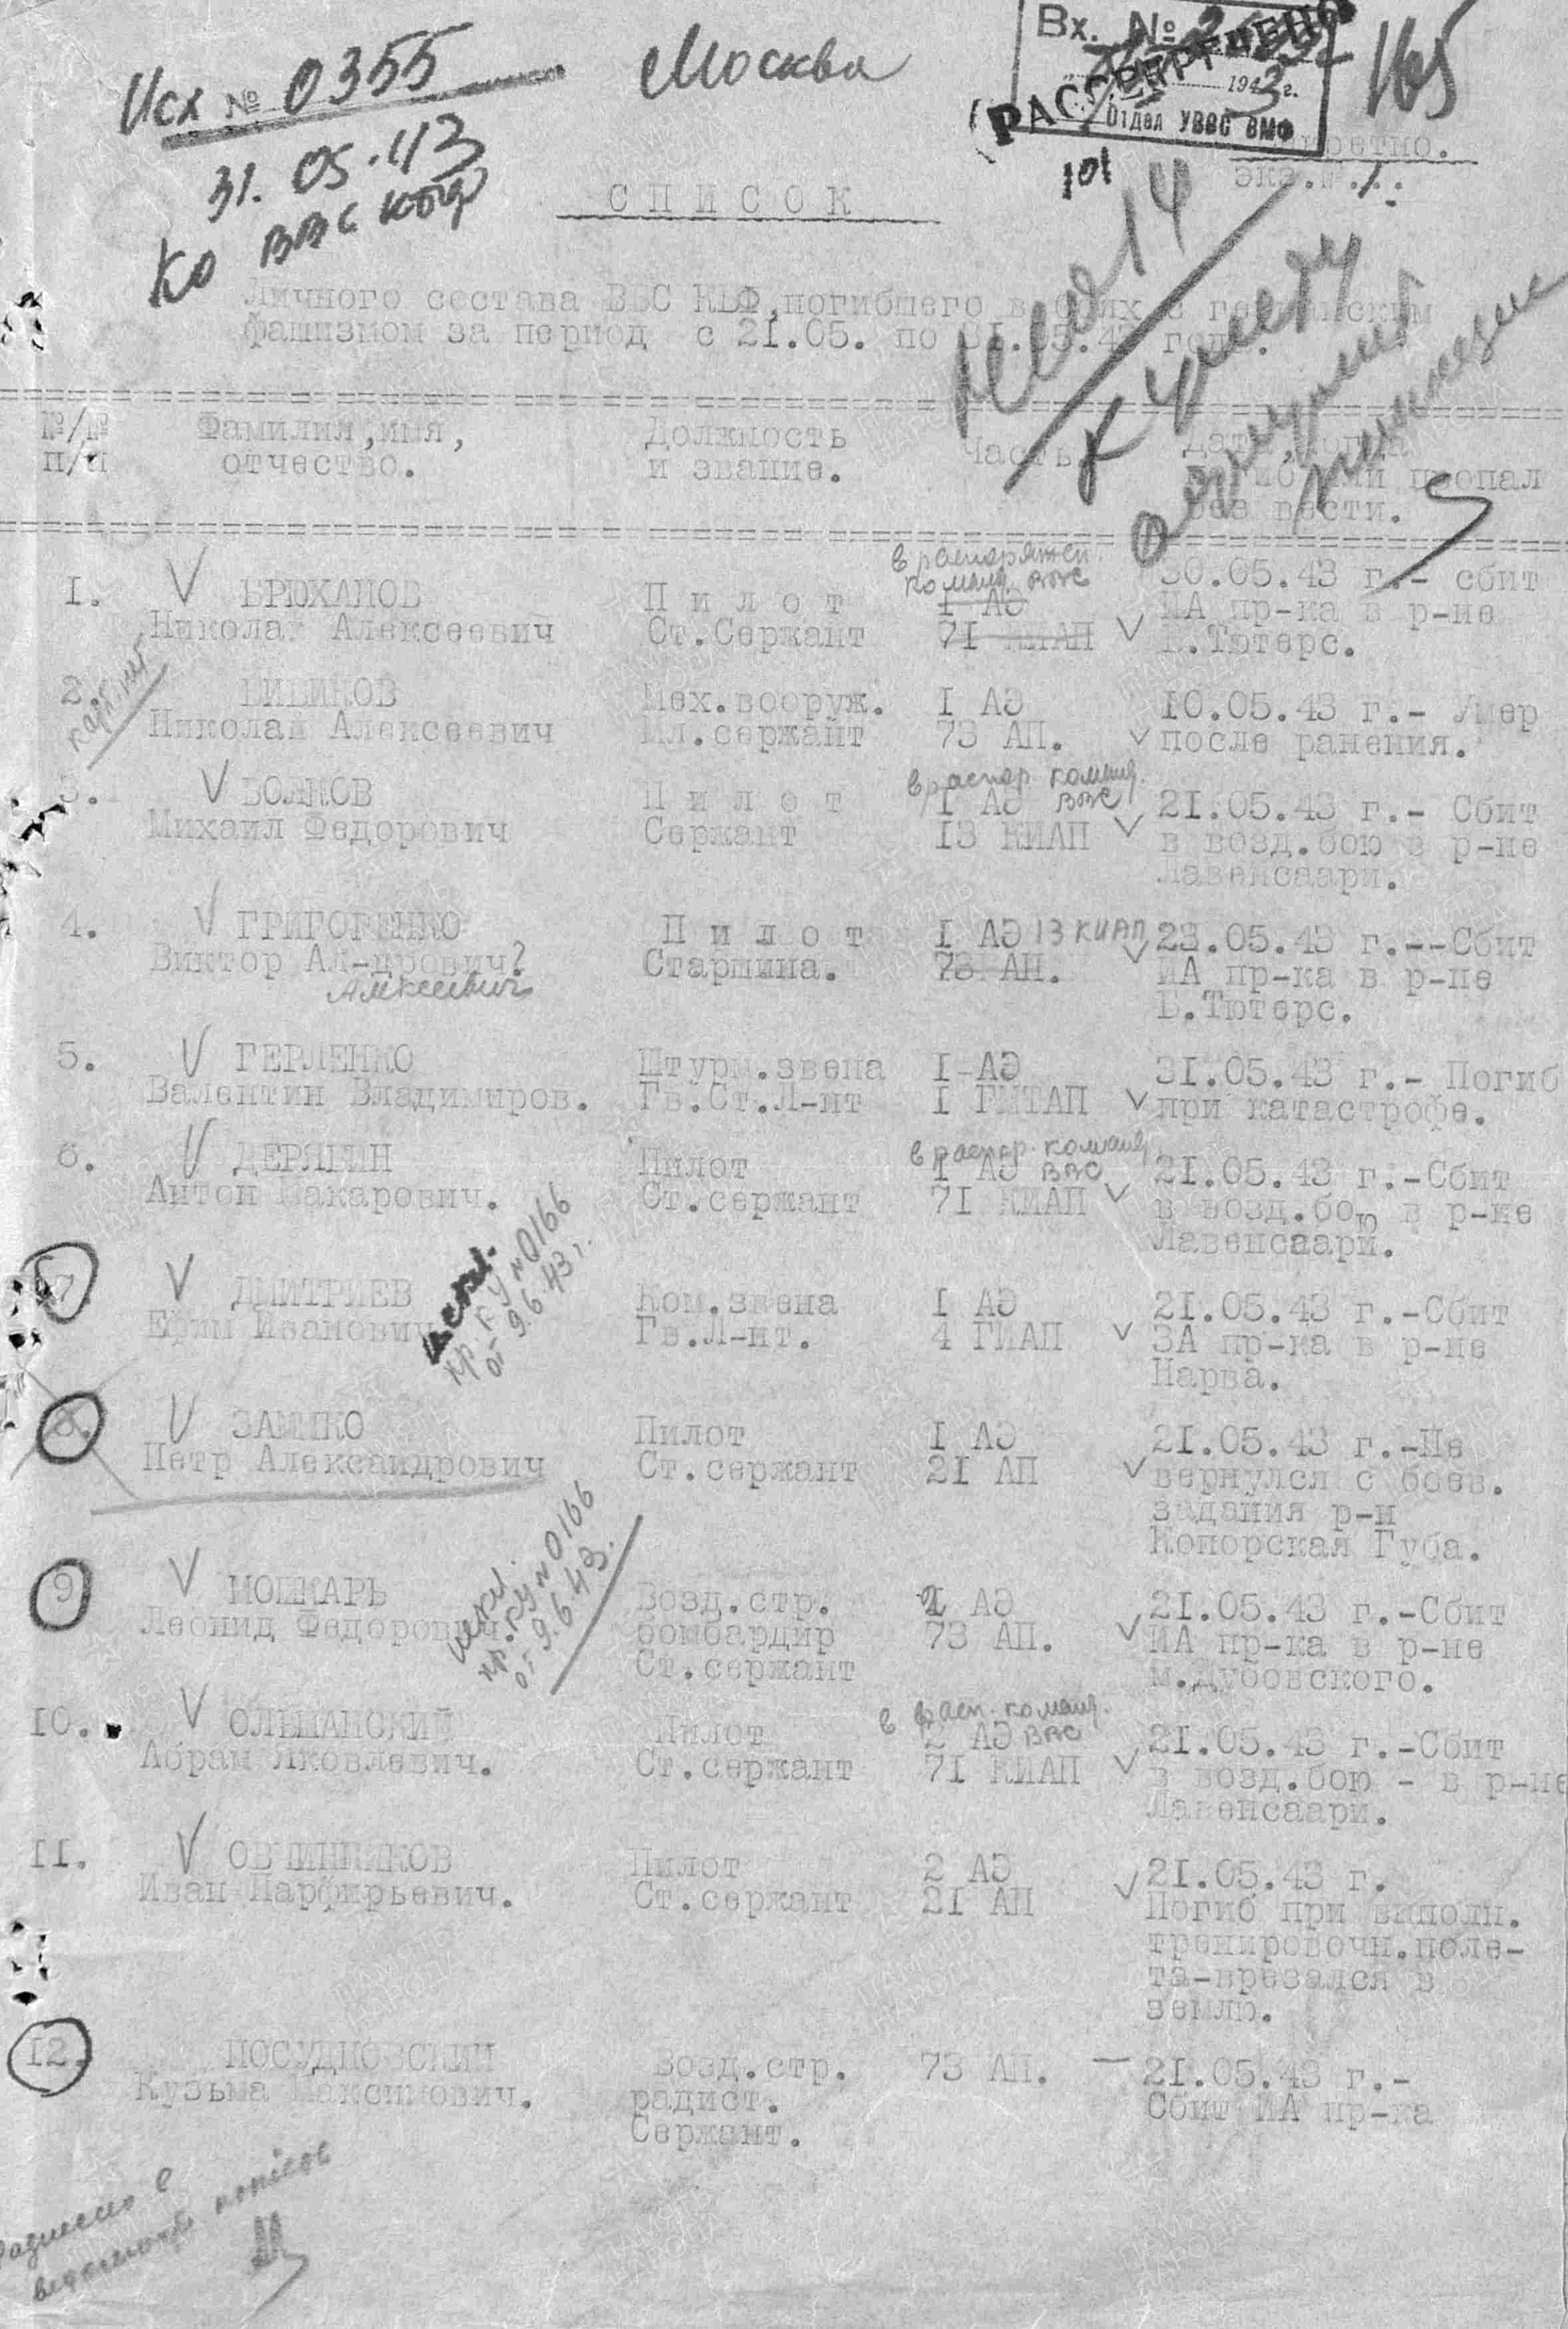 Исх № 0355
Москва
Вх. №
1943 г.
Отдел УВВС ВМФ
РАССЕКРЕЧЕНО
165
31.05.43
101
экз.№ 1.
КО ВВС КБФ
СПИСОК
Личного состава ВВС КБФ, погибшего в боях с германским
фашизмом за период с 21.05. по 31.05.43 года.
№/№ Фамилия, имя, Должность Часть Дата, когда
п/п отчество. и звание. погиб или пропал
без вести.
в распоряжен.
команд. ВВС
1. БРЮХАНОВ Пилот 1 АЭ 30.05.43 г.- сбит
Николай Алексеевич Ст.Сержант 71 КИАП ИА пр-ка в р-не
Б.Тютерс.
2. БИБИКОВ Мех.вооруж. 1 АЭ 10.05.43 г.- Умер
Николай Алексеевич Мл.сержант 73 АП. после ранения.
в распор. команд.
ВВС
3. ВОЛКОВ Пилот 1 АЭ 21.05.43 г.- Сбит
Михаил Федорович Сержант 13 КИАП в возд.бою в р-не
Лавенсаари.
4. ГРИГОРЕНКО Пилот 1 АЭ 13 КИАП 23.05.43 г.--Сбит
Виктор Ал-дрович? Старшина. 73 АП. ИА пр-ка в р-не
Алексеевич Б.Тютерс.
5. ГЕРЛЕНКО Штурм.звена 1-АЭ 31.05.43 г.- Погиб
Валентин Владимиров. Гв.Ст.Л-нт 1 ГМТАП при катастрофе.
в распор. команд.
ВВС
6. ДЕРЯБИН Пилот 1 АЭ 21.05.43 г.-Сбит
Антон Макарович. Ст.сержант 71 КИАП в возд.бою в р-не
Лавенсаари.
7. ДМИТРИЕВ Ком.звена 1 АЭ 21.05.43 г.-Сбит
Ефим Иванович Гв.Л-нт. 4 ГИАП ЗА пр-ка в р-не
Нарва.
искл.
пр. РУ №0166
от 9.6.43 г.
8. Пилот 1 АЭ 21.05.43 г.-Не
Петр Александрович Ст.сержант 21 АП вернулся с боев.
задания р-н
Копорская Губа.
9 МОШКАРЬ Возд.стр. 2 АЭ 21.05.43 г.-Сбит
Леонид Федорович бомбардир 73 АП. ИА пр-ка в р-не
Ст.сержант м.Дубовского.
искл.
пр. РУ №0166
от 9.6.43.
в расп. команд.
ВВС
10. ОЛЬШАНСКИЙ Пилот 2 АЭ 21.05.43 г.-Сбит
Абрам Яковлевич. Ст.сержант 71 КИАП в возд.бою - в р-не
Лавенсаари.
11. ОВЧИННИКОВ Пилот 2 АЭ 21.05.43 г.
Иван Парфирьевич. Ст.сержант 21 АП Погиб при выполн.
тренировочн.поле-
та-врезался в
землю.
12. ПОСУДНОВСКИЙ Возд.стр. 73 АП. 21.05.43 г.-
Кузьма Максимович. радист. Сбит ИА пр-ка
Сержант.